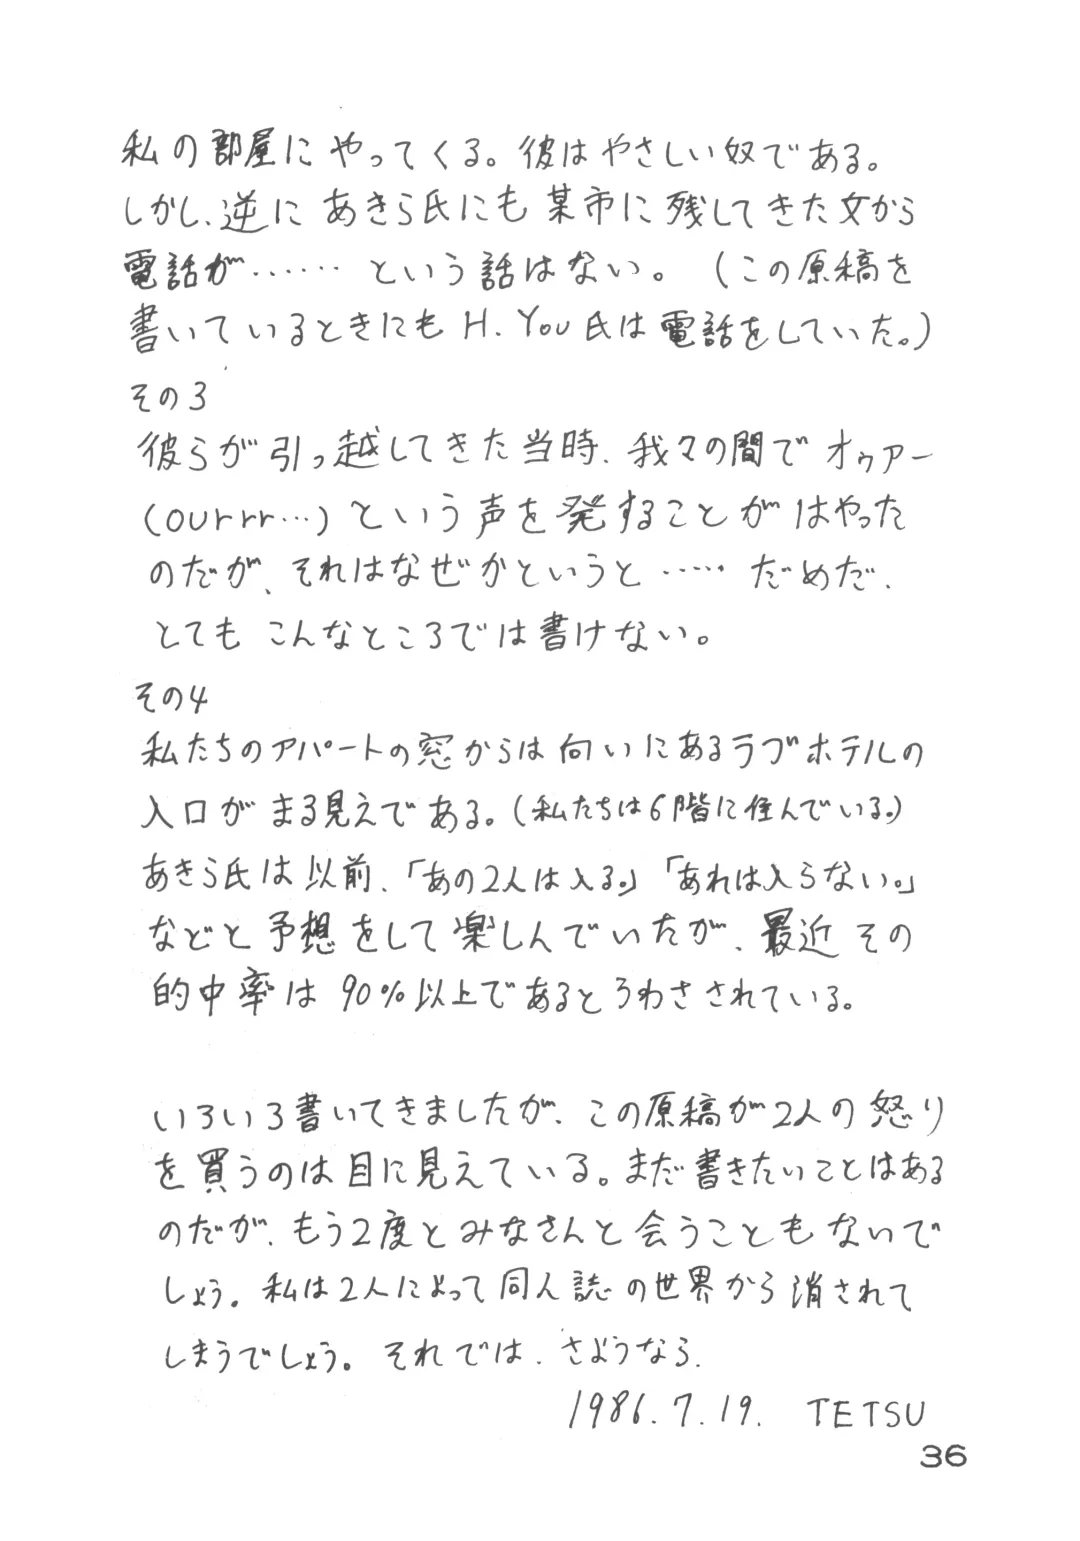 私の部屋にやってくる。彼はやさしい奴である。
しかし、逆にあきら氏にも某市に残してきた女から
電話が……という話はない。（この原稿を
書いているときにもH.You氏は電話をしていた。）
その3
彼らが引っ越してきた当時、我々の間でオゥアー
(ourrr…)という声を発することがはやった
のだが、それはなぜかというと……だめだ、
とてもこんなところでは書けない。
その4
私たちのアパートの窓からは向いにあるラブホテルの
入口がまる見えである。（私たちは6階に住んでいる。）
あきら氏は以前、「あの2人は入る。」「あれは入らない。」
などと予想をして楽しんでいたが、最近その
的中率は90%以上であるとうわさされている。
いろいろ書いてきましたが、この原稿が2人の怒り
を買うのは目に見えている。まだ書きたいことはある
のだが、もう2度とみなさんと会うこともないで
しょう。私は2人によって同人誌の世界から消されて
しまうでしょう。それでは、さようなら.
1986.7.19. TETSU
36